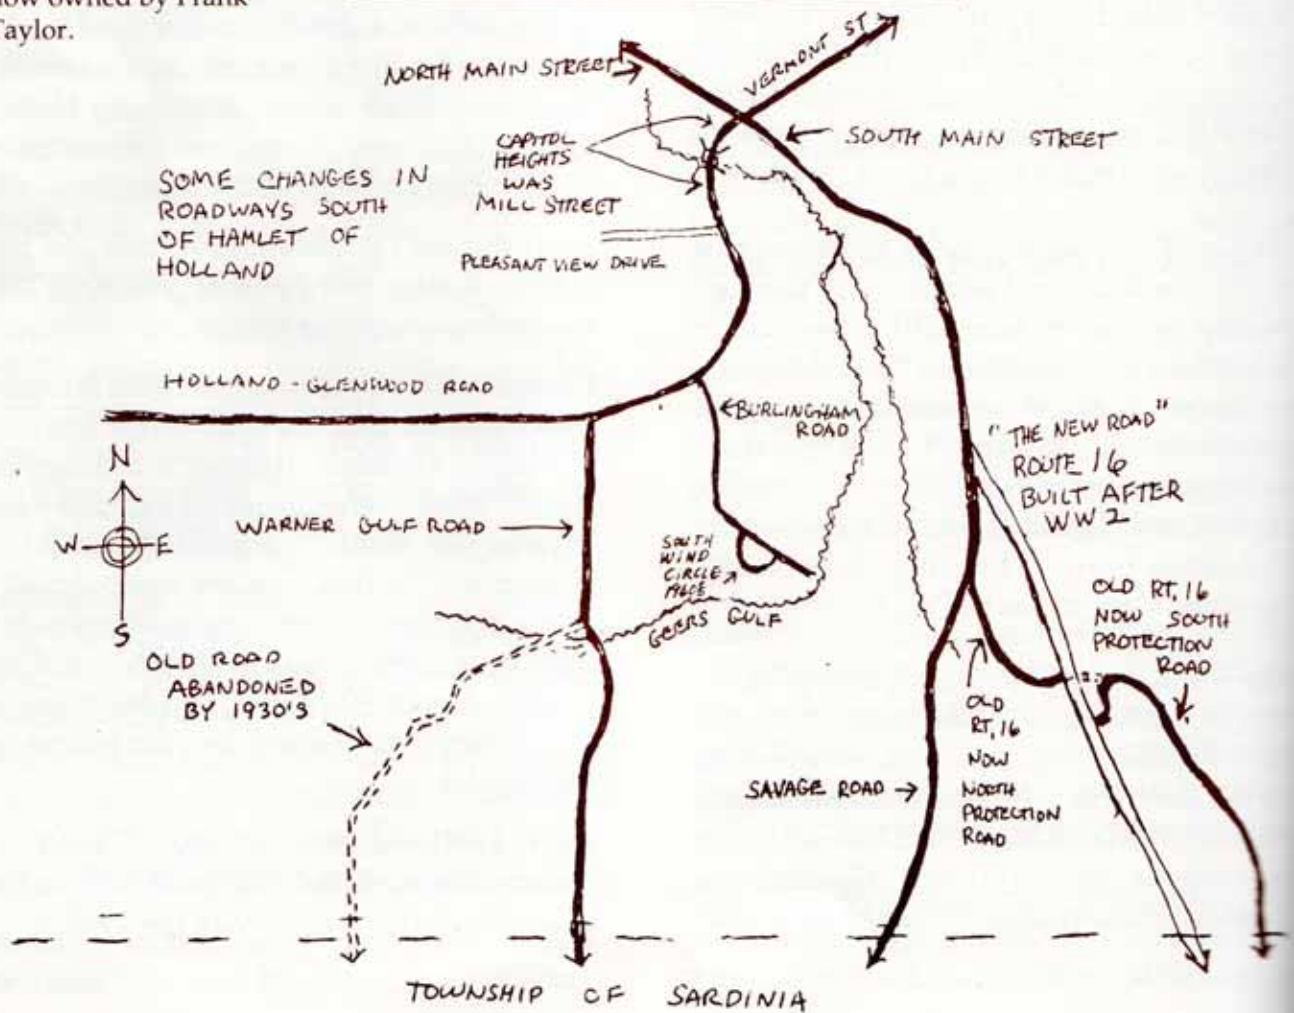 now owned by Frank
Taylor.
VERMONT ST
NORTH MAIN STREET
SOUTH MAIN STREET
CAPITOL
HEIGHTS
WAS
MILL STREET
SOME CHANGES IN
ROADWAYS SOUTH
OF HAMLET OF
HOLLAND
PLEASANT VIEW DRIVE
HOLLAND - GLENWOOD ROAD
BURLINGHAM
ROAD
"THE NEW ROAD"
ROUTE 16
BUILT AFTER
WW2
N
W E
S
WARNER GULF ROAD
SOUTH
WIND
CIRCLE
GEERS GULF
OLD RT. 16
NOW SOUTH
PROTECTION
ROAD
OLD ROAD
ABANDONED
BY 1930'S
OLD
RT. 16
NOW
NORTH
PROTECTION
ROAD
SAVAGE ROAD
TOWNSHIP OF SARDINIA